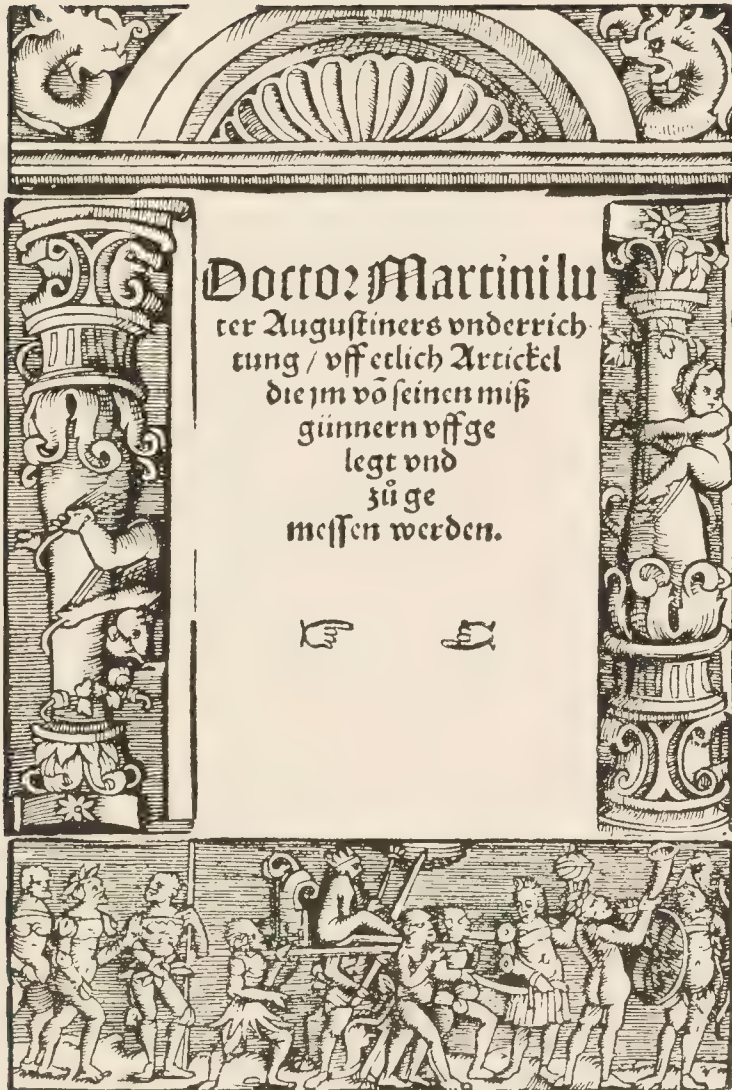 Doctor Martini lu
ter Augustiners vnderrich
tung / vff etlich Artickel
die jm võ seinen miß
günnern vffge
legt vnd
zů ge
messen werden.